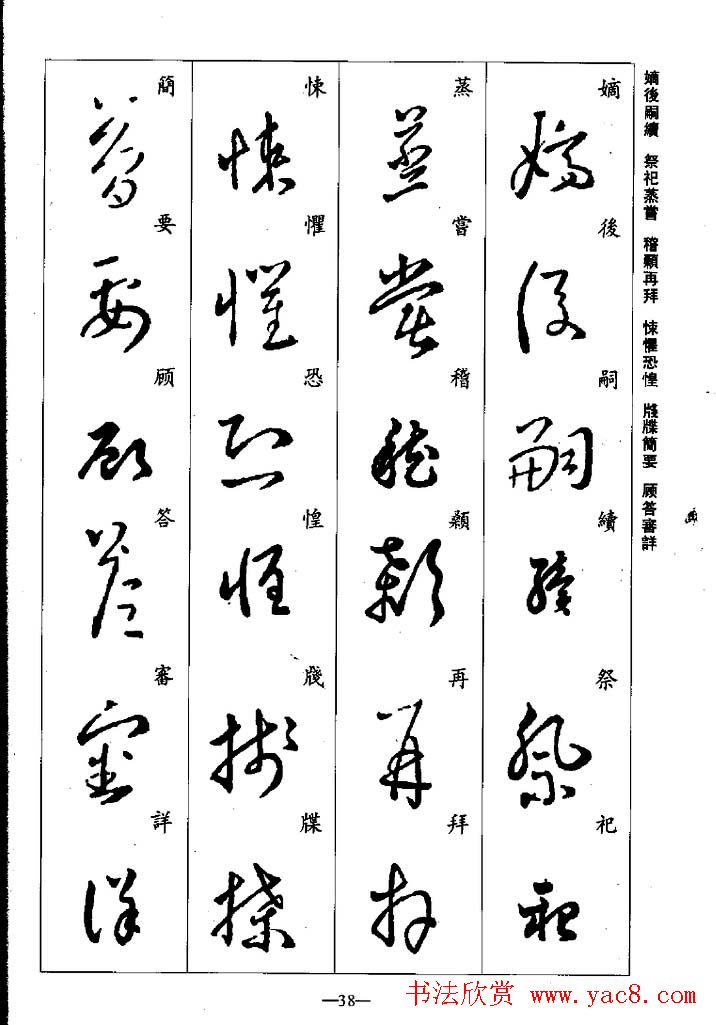 嫡後嗣續 祭祀蒸嘗 稽顙再拜 悚懼恐惶 牋牒簡要 顾答審詳
嫡後嗣續祭祀
蒸嘗稽顙再拜
悚懼恐惶牋牒
簡要顾答審詳
—38—
书法欣赏 www.yac8.com